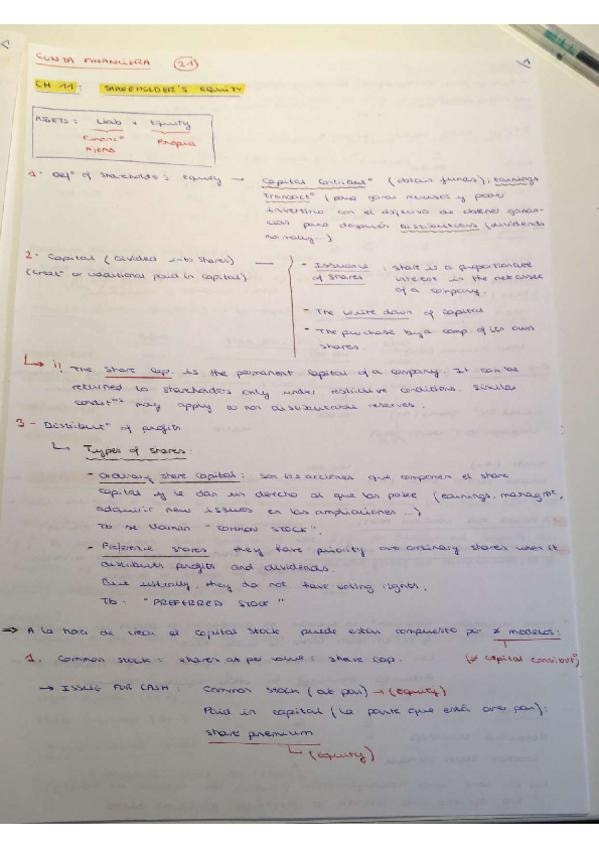 CONTA FINANCIERA (21)
CH 11: SHAREHOLDER'S EQUITY
ASSETS = Liab + Equity
Financ°
Ajena
Propia
1- Def° of shareholder's equity → Capital Contribut° (obtain funds); earnings
Transact° (para ganar recursos y poder
invertirlo con el objetivo de obtener ganan-
cias para después distributions (dividends
normally...)
2- Capital (Divided into shares)
(Great° or additional paid in capital)
- Issuance of shares: share is a proportionate
interest in the net asset
of a company.
- The write down of capital
- The purchase by a comp of its own
shares.
↳ !! The share cap. is the permanent capital of a company. It can be
returned to shareholders only under restrictive conditions. Similar
condit°s may apply to non distributable reserves.
3- Distribut° of profits
↳ Types of shares:
- Ordinary share capital: son las acciones que componen el share
capital y le dan un derecho al que las posee (earnings, managmt,
adquirir new issues en las ampliaciones...)
Tb se llaman "COMMON STOCK".
- Preference shares they have priority over ordinary shares when it
distributes profits and dividends.
But usually, they do not have voting rights.
Tb: "PREFERRED STOCK"
⇒ A la hora de crear el capital stock puede estar compuesto por ≠ modelos:
(≠ capital contribut°)
1. Common stock = shares at par value = share cap.
→ ISSUE FOR CASH: Common stock (at par) → (equity)
Paid in capital (la parte que está over par):
share premium
↳ (equity)